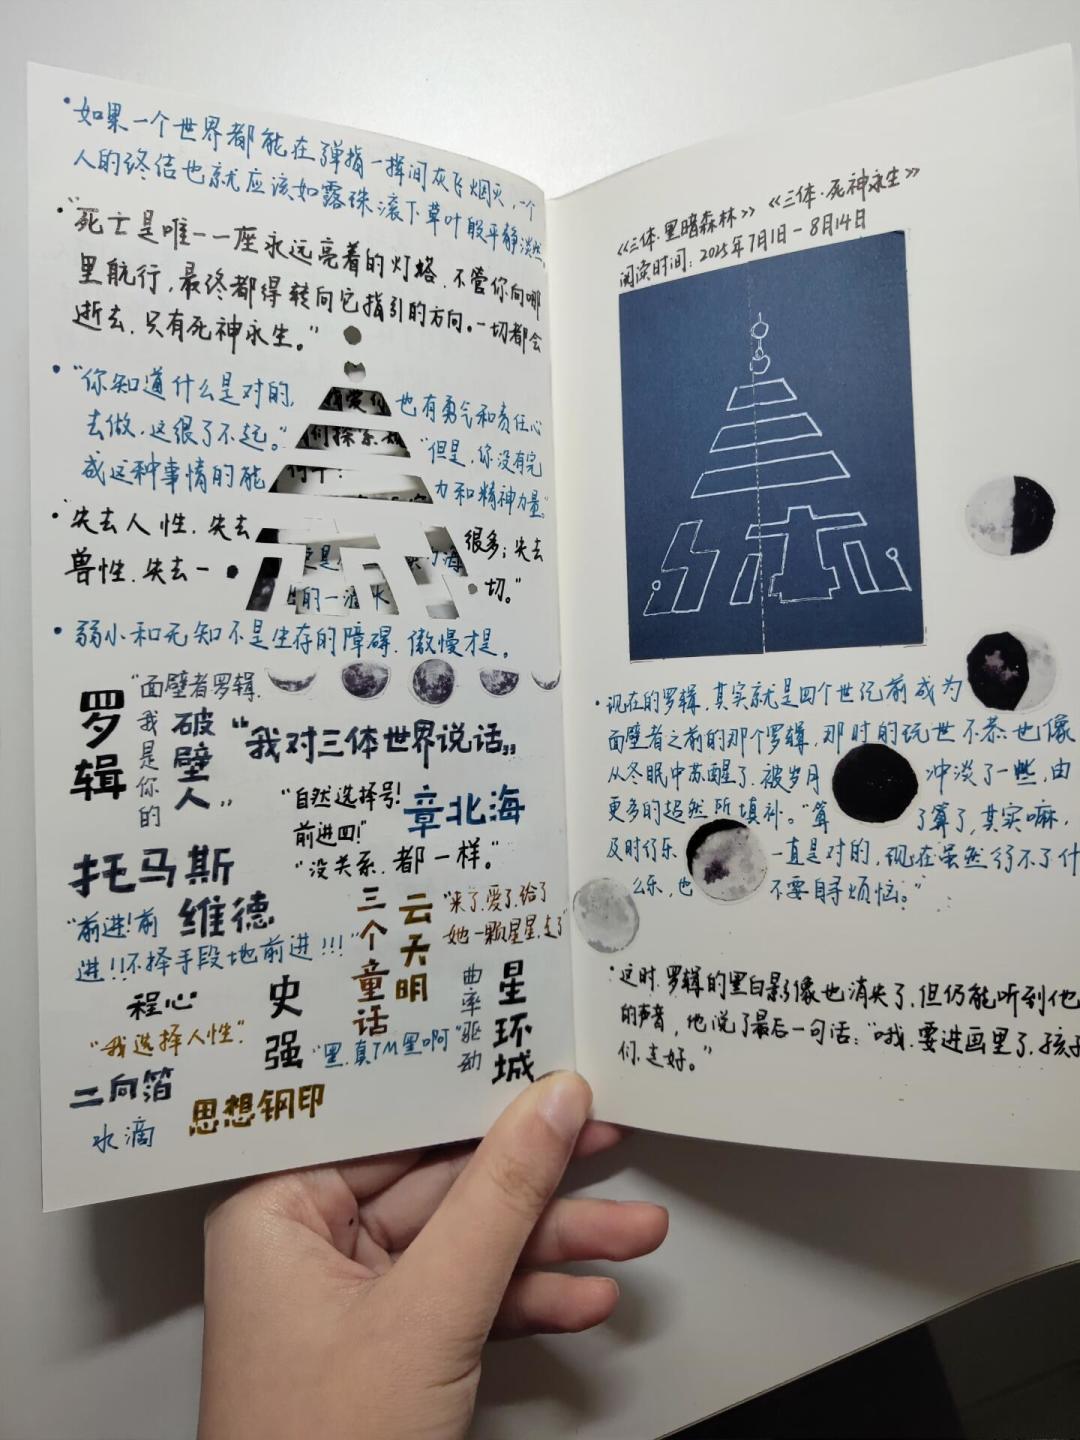 ·如果一个世界都能在弹指一挥间灰飞烟灭，一个
人的终结也就应该如露珠滚下草叶般平静淡然。
·"死亡是唯一一座永远亮着的灯塔，不管你向哪
里航行，最终都得转向它指引的方向。一切都会
逝去，只有死神永生。"
·"你知道什么是对的，也有勇气和责任心
去做，这很了不起。""但是，你没有完
成这种事情的能力和精神力量。"
·失去人性，失去很多；失去
兽性，失去一切。"
·弱小和无知不是生存的障碍，傲慢才是。
罗辑
"面壁者罗辑，
我是你的
破壁人"
"我对三体世界说话"
"自然选择号！
前进四！"
章北海
"没关系，都一样。"
托马斯
维德
"前进！前
进！！不择手段地前进！！！"
三个童话
云天明
"来了，爱了，给了
她一颗星星，走了"
程心
"我选择人性"
史强
"黑，真TM黑啊"
曲率驱动
星环城
二向箔
水滴
思想钢印
《三体·黑暗森林》《三体·死神永生》
阅读时间：2025年7月1日-8月14日
三体
·现在的罗辑，其实就是四个世纪前成为
面壁者之前的那个罗辑，那时的玩世不恭也像
从冬眠中苏醒了，被岁月冲淡了一些，由
更多的超然所填补。"算了算了，其实嘛，
及时行乐一直是对的，现在虽然行不了什
么乐，也不要自寻烦恼。"
·这时，罗辑的黑白影像也消失了，但仍能听到他
的声音，他说了最后一句话："哦，要进画里了，孩子
们，走好。"